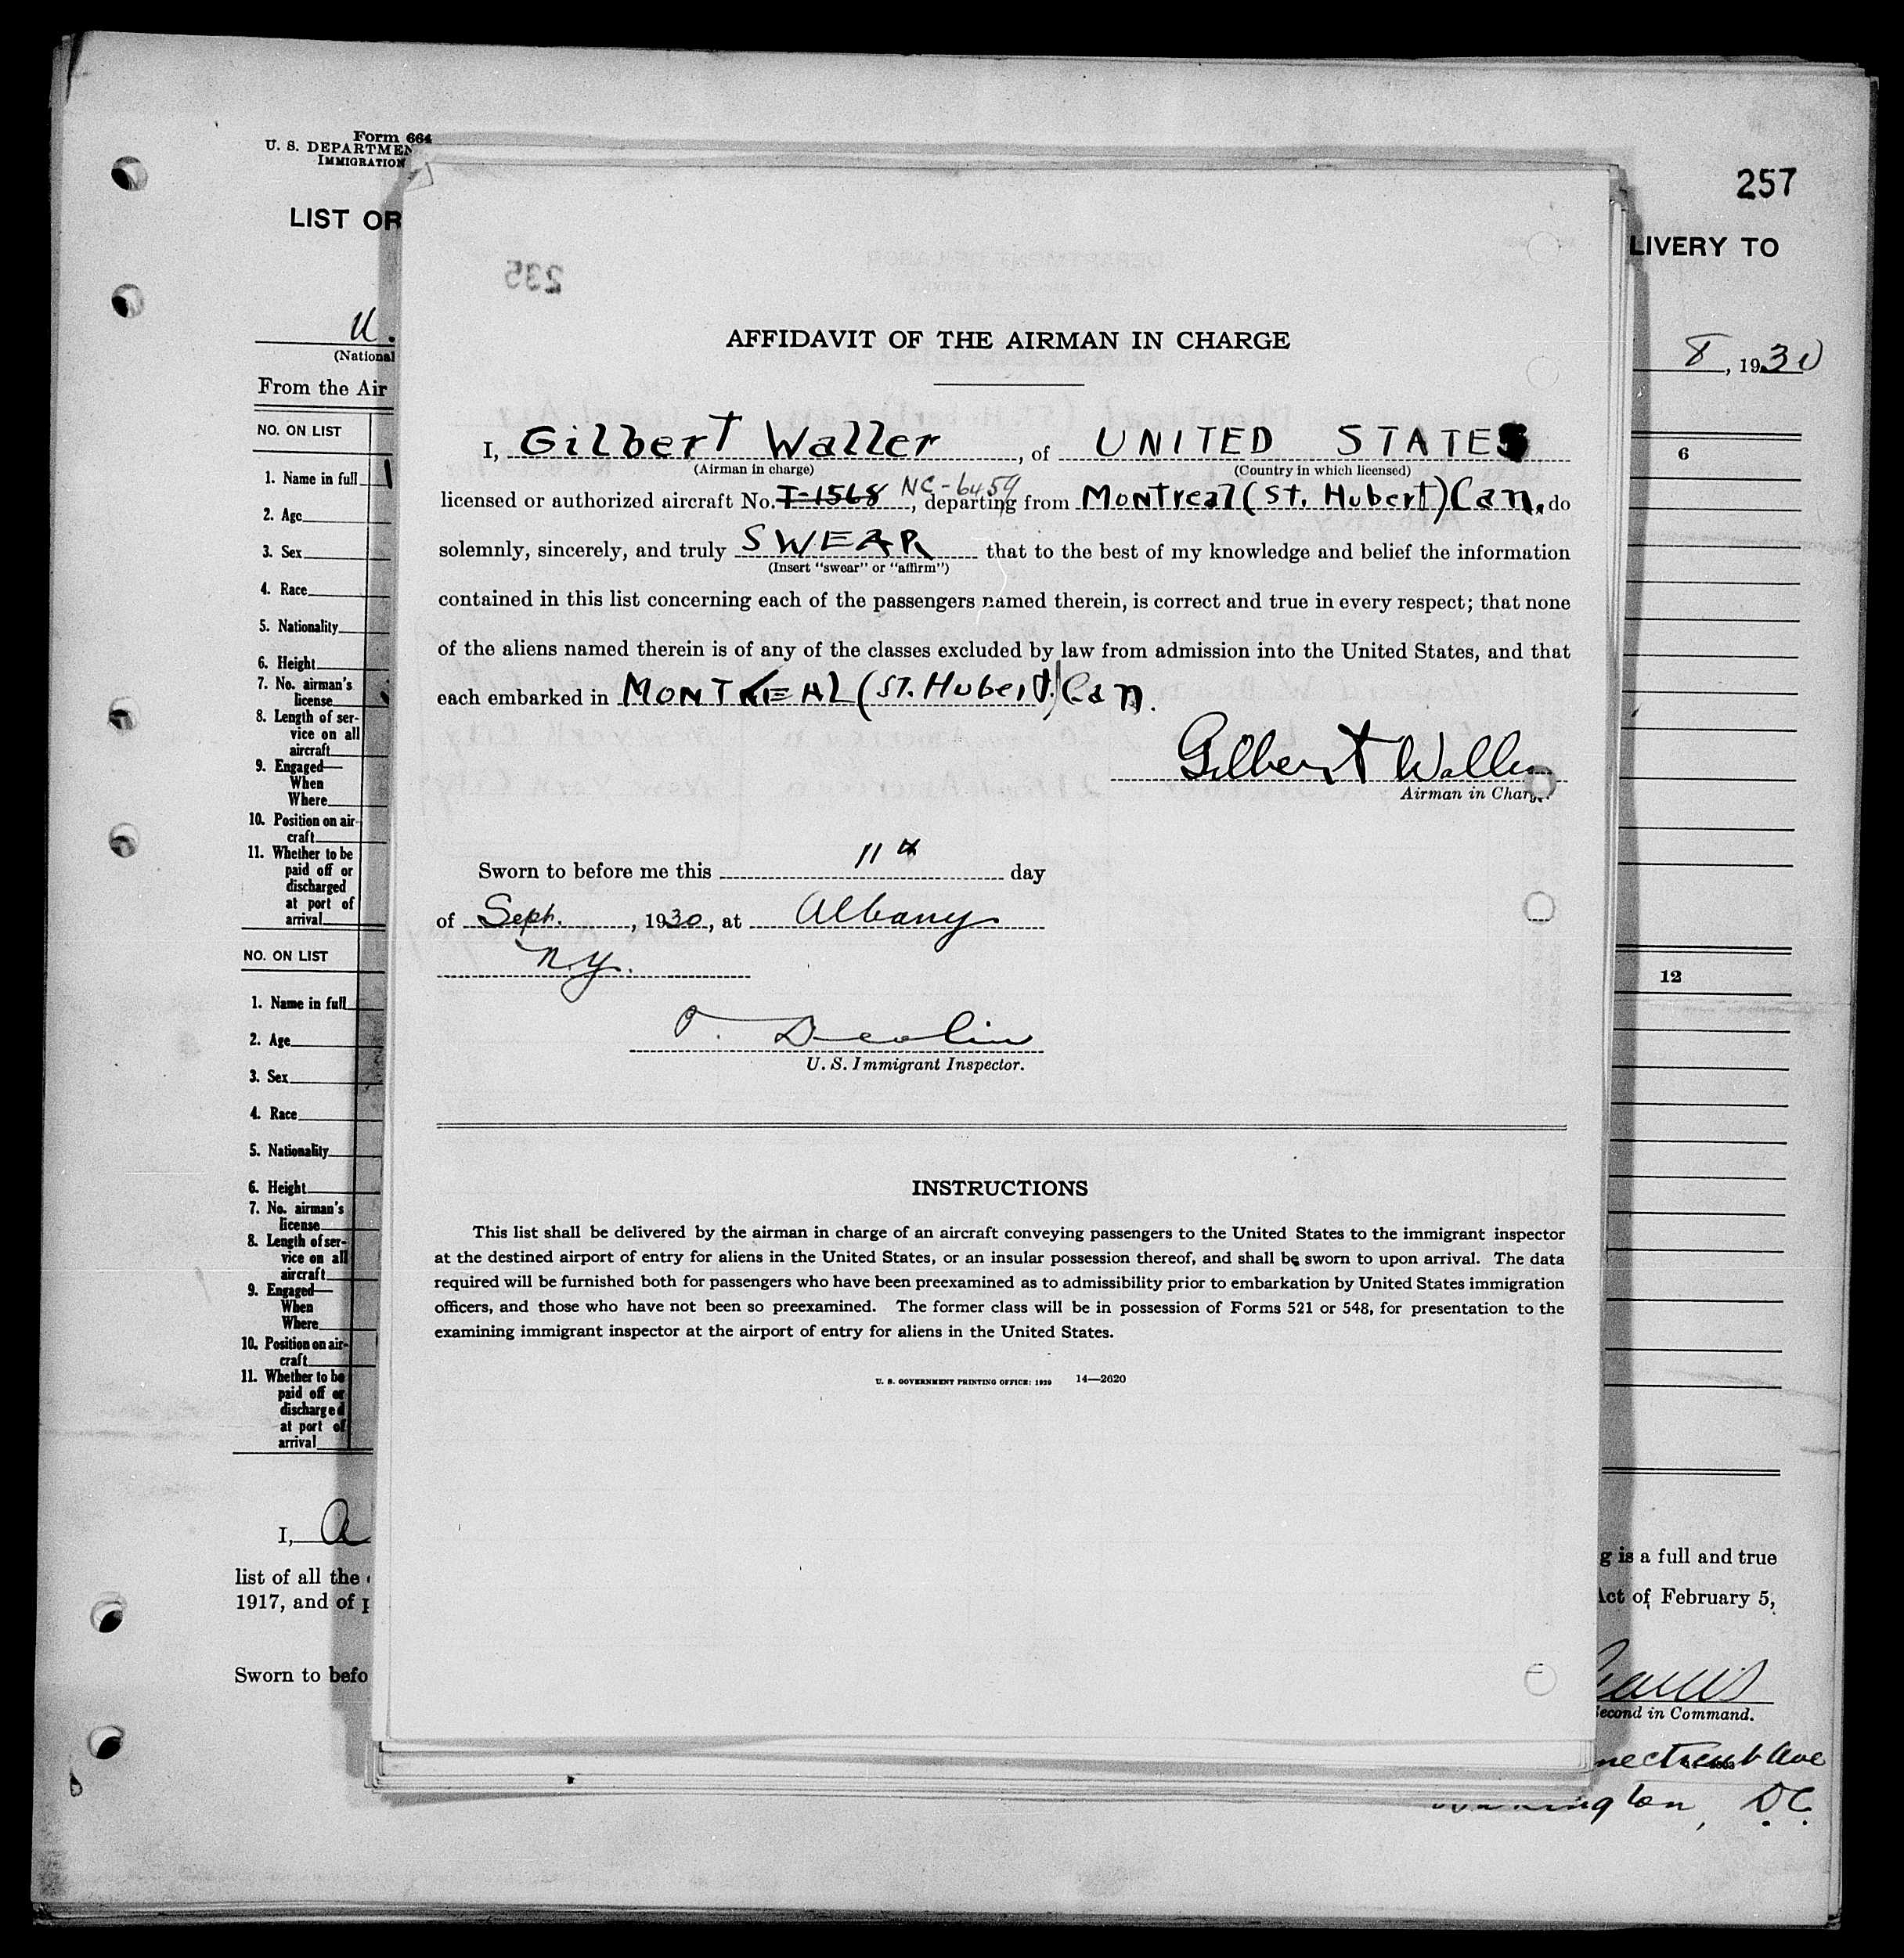 Form 664
U. S. DEPARTMEN
IMMIGRATION
257
LIST OR
LIVERY TO
235
U.
(National
8, 1930
From the Air
AFFIDAVIT OF THE AIRMAN IN CHARGE
I, Gilbert Waller, of UNITED STATES
(Airman in charge) (Country in which licensed)
licensed or authorized aircraft No. T-1568 NC-6459, departing from Montreal (St. Hubert) Can. do
solemnly, sincerely, and truly SWEAR that to the best of my knowledge and belief the information
(Insert "swear" or "affirm")
contained in this list concerning each of the passengers named therein, is correct and true in every respect; that none
of the aliens named therein is of any of the classes excluded by law from admission into the United States, and that
each embarked in MONTREAL (ST. Hubert.) Can.
Gilbert Waller
Airman in Charge.
Sworn to before me this 11th day
of Sept., 1930, at Albany
N.Y.
U. S. Immigrant Inspector.
INSTRUCTIONS
This list shall be delivered by the airman in charge of an aircraft conveying passengers to the United States to the immigrant inspector
at the destined airport of entry for aliens in the United States, or an insular possession thereof, and shall be sworn to upon arrival. The data
required will be furnished both for passengers who have been preexamined as to admissibility prior to embarkation by United States immigration
officers, and those who have not been so preexamined. The former class will be in possession of Forms 521 or 548, for presentation to the
examining immigrant inspector at the airport of entry for aliens in the United States.
U. S. GOVERNMENT PRINTING OFFICE: 1929 14—2620
NO. ON LIST
6
1. Name in full
2. Age
3. Sex
4. Race
5. Nationality
6. Height
7. No. airman's
license
8. Length of ser-
vice on all
aircraft
9. Engaged—
When
Where
10. Position on air-
craft
11. Whether to be
paid off or
discharged
at port of
arrival
NO. ON LIST
12
1. Name in full
2. Age
3. Sex
4. Race
5. Nationality
6. Height
7. No. airman's
license
8. Length of ser-
vice on all
aircraft
9. Engaged—
When
Where
10. Position on air-
craft
11. Whether to be
paid off or
discharged
at port of
arrival
I, A
g is a full and true
list of all the
1917, and of
Act of February 5,
Sworn to befo
Second in Command.
necticut Ave
Washington, D.C.